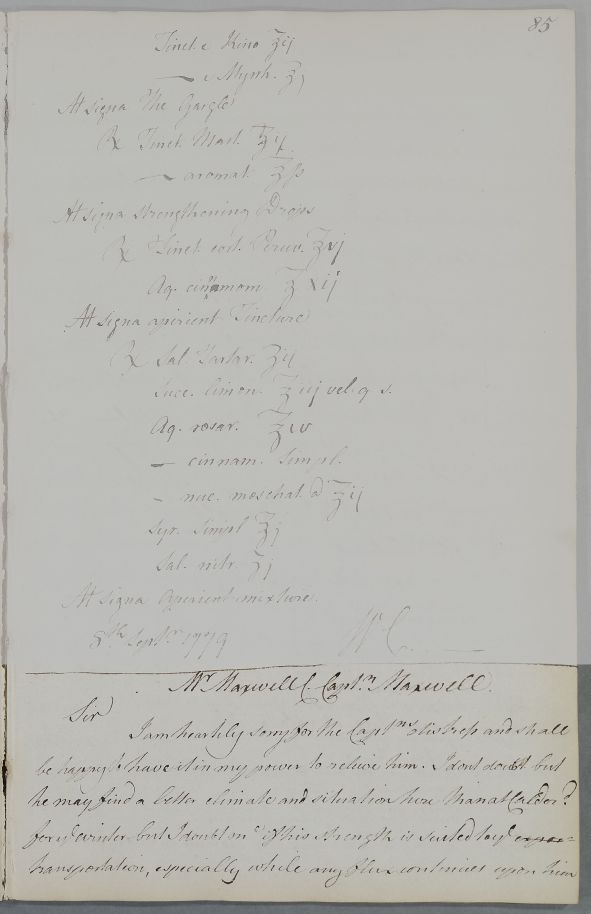 85
Tinct. e Kino ʒij
— e Myrrh. ʒj
Et signa the Gargle
℞ Tinct. Mart. ℥ij
— aromat. ℥ß
Et signa strengthening Drops
℞ Tinct. cort. Peruv. ℥vj
Aq. cinnamom. ℥xij
Et signa aperient Tincture
℞ Sal. Tartar. ʒij
Succ. limon. ℥iij vel q. s.
Aq. rosar. ℥iv
— cinnam. simpl.
— nuc. moschat. a ℥ij
Syr. simpl ℥j
Sal. nitr. ʒj
Et signa Aperient mixture.
8th. Septr. 1779 WC.
Mr. Maxwell C. Captn. Maxwell.
Sir
I am heartily sorry for the Captns. distress and shall
be happy if I have it in my power to relieve him. I dont doubt but
he may find a better climate and situation here than at Calder?
for ye winter but I doubt if his strength is suited to ye
transportation, especially while any flux continues upon him